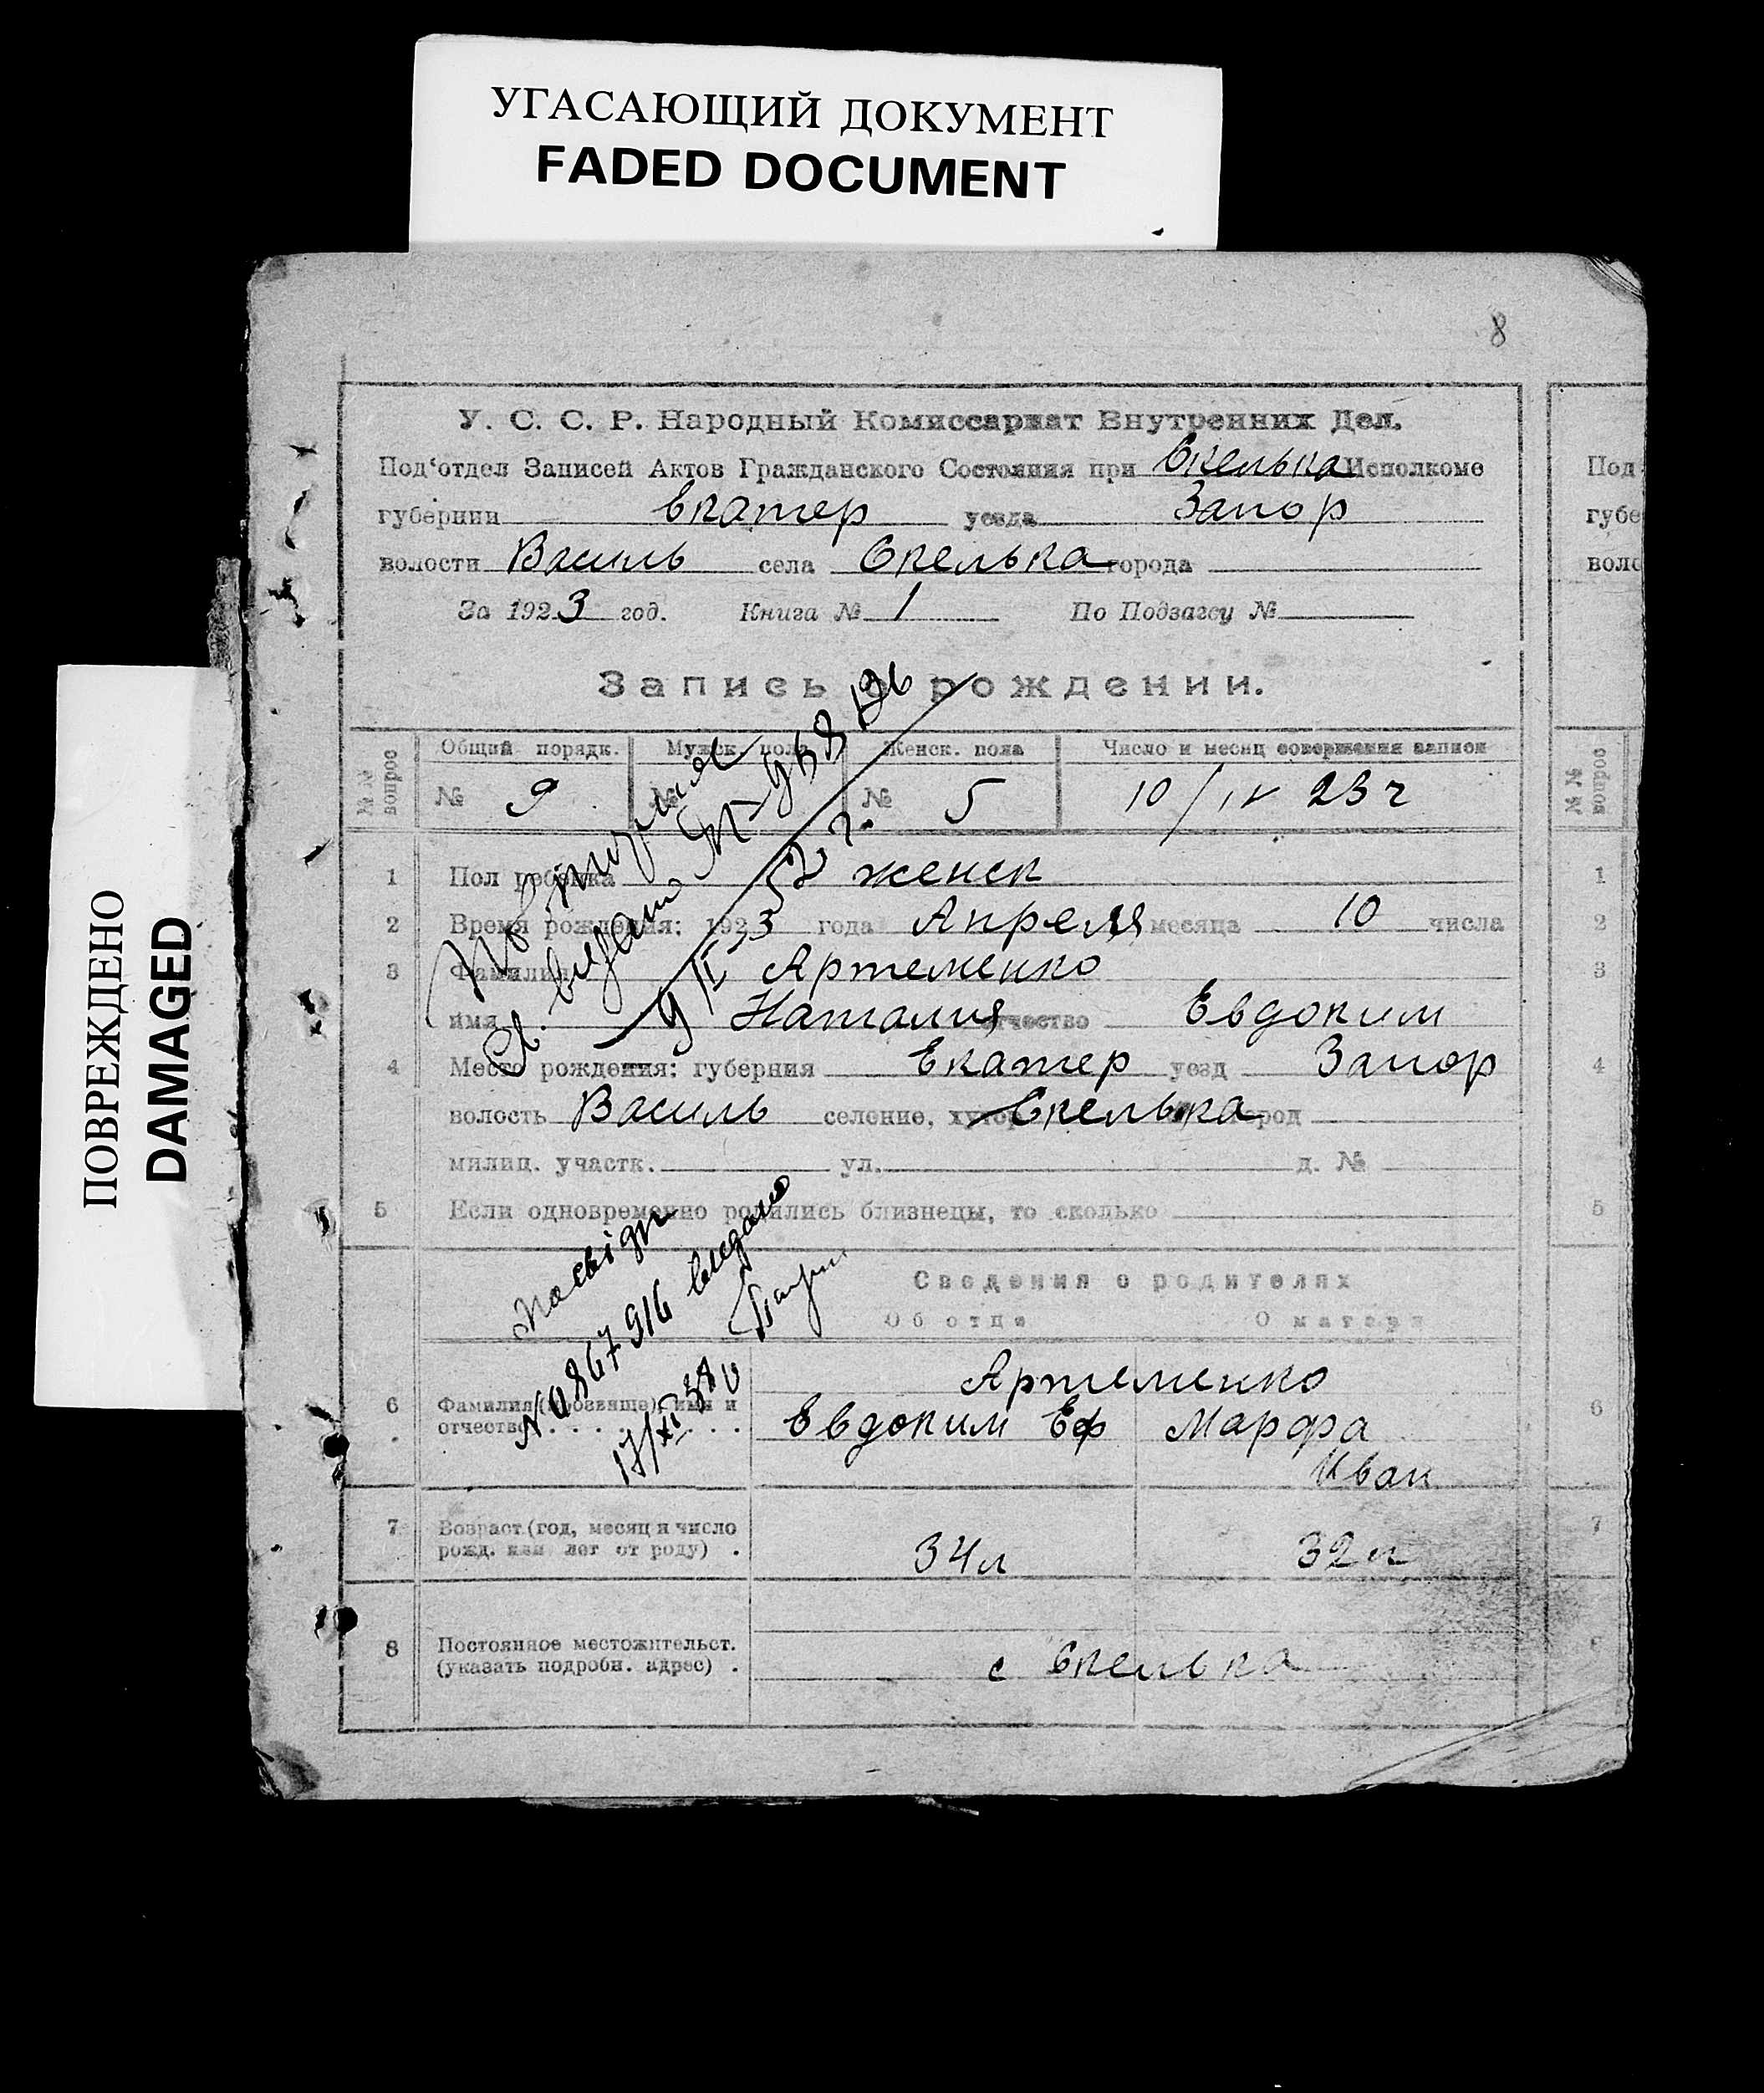 УГАСАЮЩИЙ ДОКУМЕНТ
FADED DOCUMENT
ПОВРЕЖДЕНО
DAMAGED
8
У. С. С. Р. Народный Комиссариат Внутренних Дел.
Под‘отдел Записей Актов Гражданского Состояния при Скелька Исполкоме
губернии Екатер уезда Запор
волости Василь села Скелька города
За 1923 год. Книга № 1 По Подзагсу №
Запись о рождении.
№№ вопрос
Общий порядк. Мужск. пола Женск. пола Число и месяц совершения записи
№ 9 № № 5 10/IV 23 г
1 Пол ребенка женск
2 Время рождения: 1923 года Апреля месяца 10 числа
3 Фамилия Артеменко
имя Наталия отчество Евдоким
4 Место рождения: губерния Екатер уезд Запор
волость Василь селение, хутор Скелька город
милиц. участк. ул. д. №
5 Если одновременно родились близнецы, то сколько
Сведения о родителях
Об отце О матери
Артеменко
6 Фамилия (прозвище), имя и
отчество . . . . . . . Евдоким Еф Марфа
Иван
7 Возраст (год, месяц и число
рожд. или лет от роду) . 34 л 32 л
8 Постоянное местожительст.
(указать подробн. адрес) . с Скелька
Повторное
св. выдано
9/II 52 г.
Посвідч
№ 0867916 видано
17/XI 38
Под
губе
воло
№№ вопрос
1
2
3
4
5
6
7
8